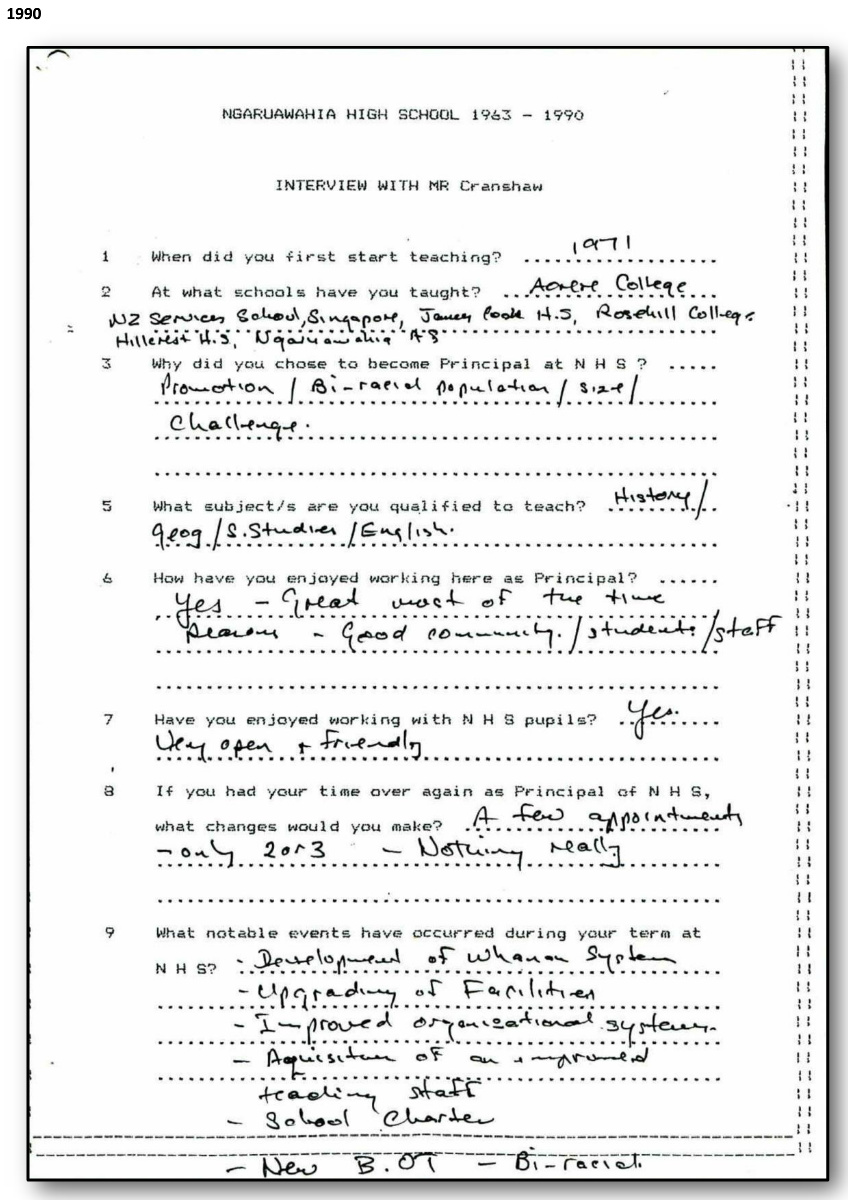 1990
NGARUAWAHIA HIGH SCHOOL 1963 - 1990
INTERVIEW WITH MR Cranshaw
1 When did you first start teaching? ....1971....
2 At what schools have you taught? ...Aorere College
NZ Services School, Singapore, James Cook H.S, Rosehill College
Hillcrest H.S, Ngaruawahia H S
3 Why did you chose to become Principal at N H S ? .....
Promotion / Bi-racial population / size /
Challenge.
5 What subject/s are you qualified to teach? History /
Geog / S.Studies / English.
6 How have you enjoyed working here as Principal? ......
Yes - Great most of the time
Reasons - Good community. / students / staff
7 Have you enjoyed working with N H S pupils? ..Yes.
Very open + friendly
8 If you had your time over again as Principal of N H S,
what changes would you make? A few appointments
- only 2 or 3 - Nothing really
9 What notable events have occurred during your term at
N H S? - Development of Whanau System
- Upgrading of Facilities
- Improved organizational systems.
- Aquisition of an improved
teaching staff
- School Charter
- New B.OT - Bi-racial